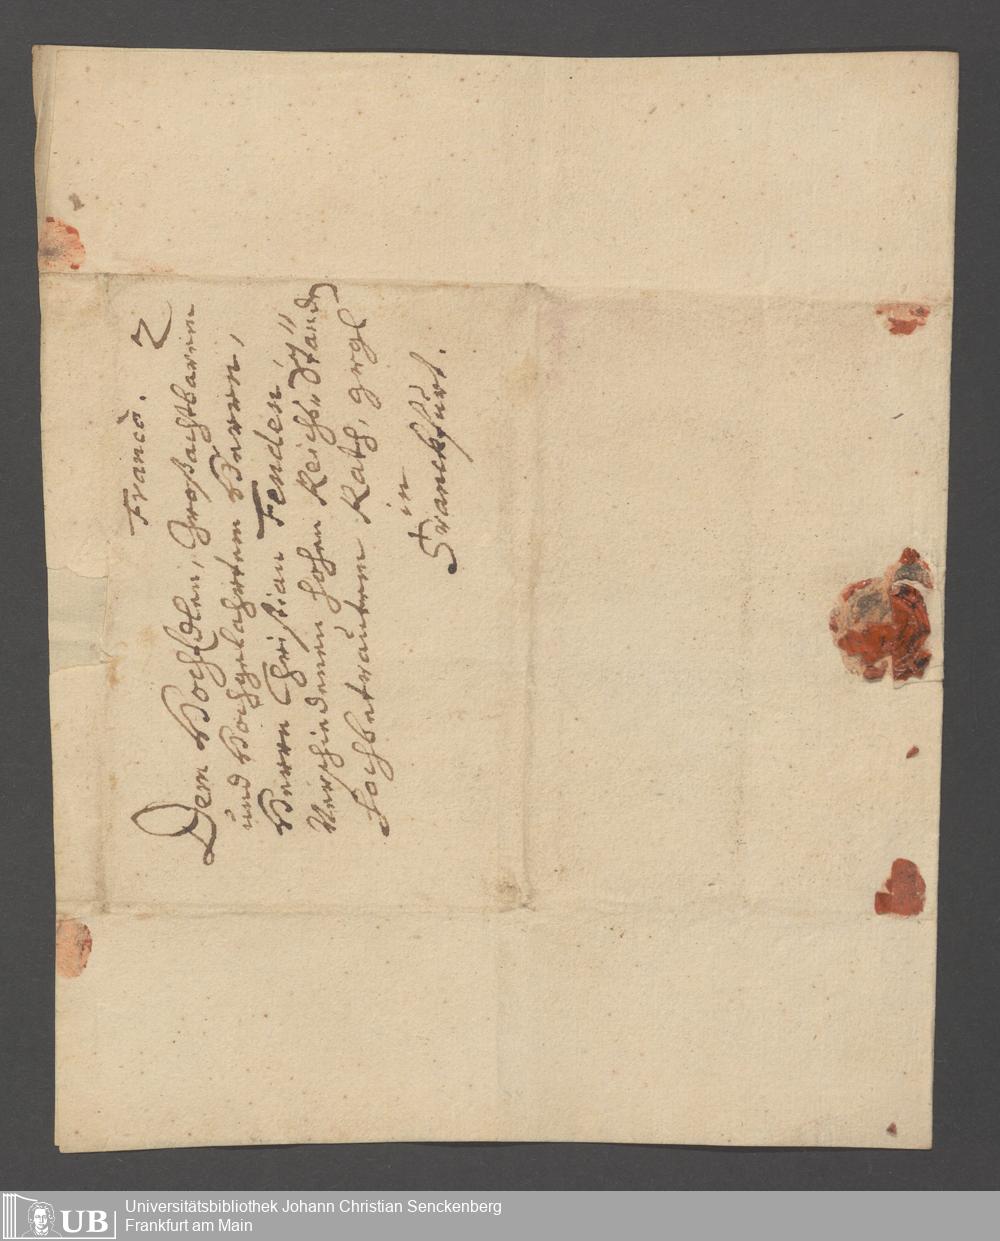 Francò. 2
Dem HochEdlen, Großachtbaren
und Hochgelahrten Herrn,
Herrn Christian Fenden,
Verschiedenen hohen Reichs Ständ
hochbetrautem Rath,
in
Franckfurt.
UB Universitätsbibliothek Johann Christian Senckenberg
Frankfurt am Main